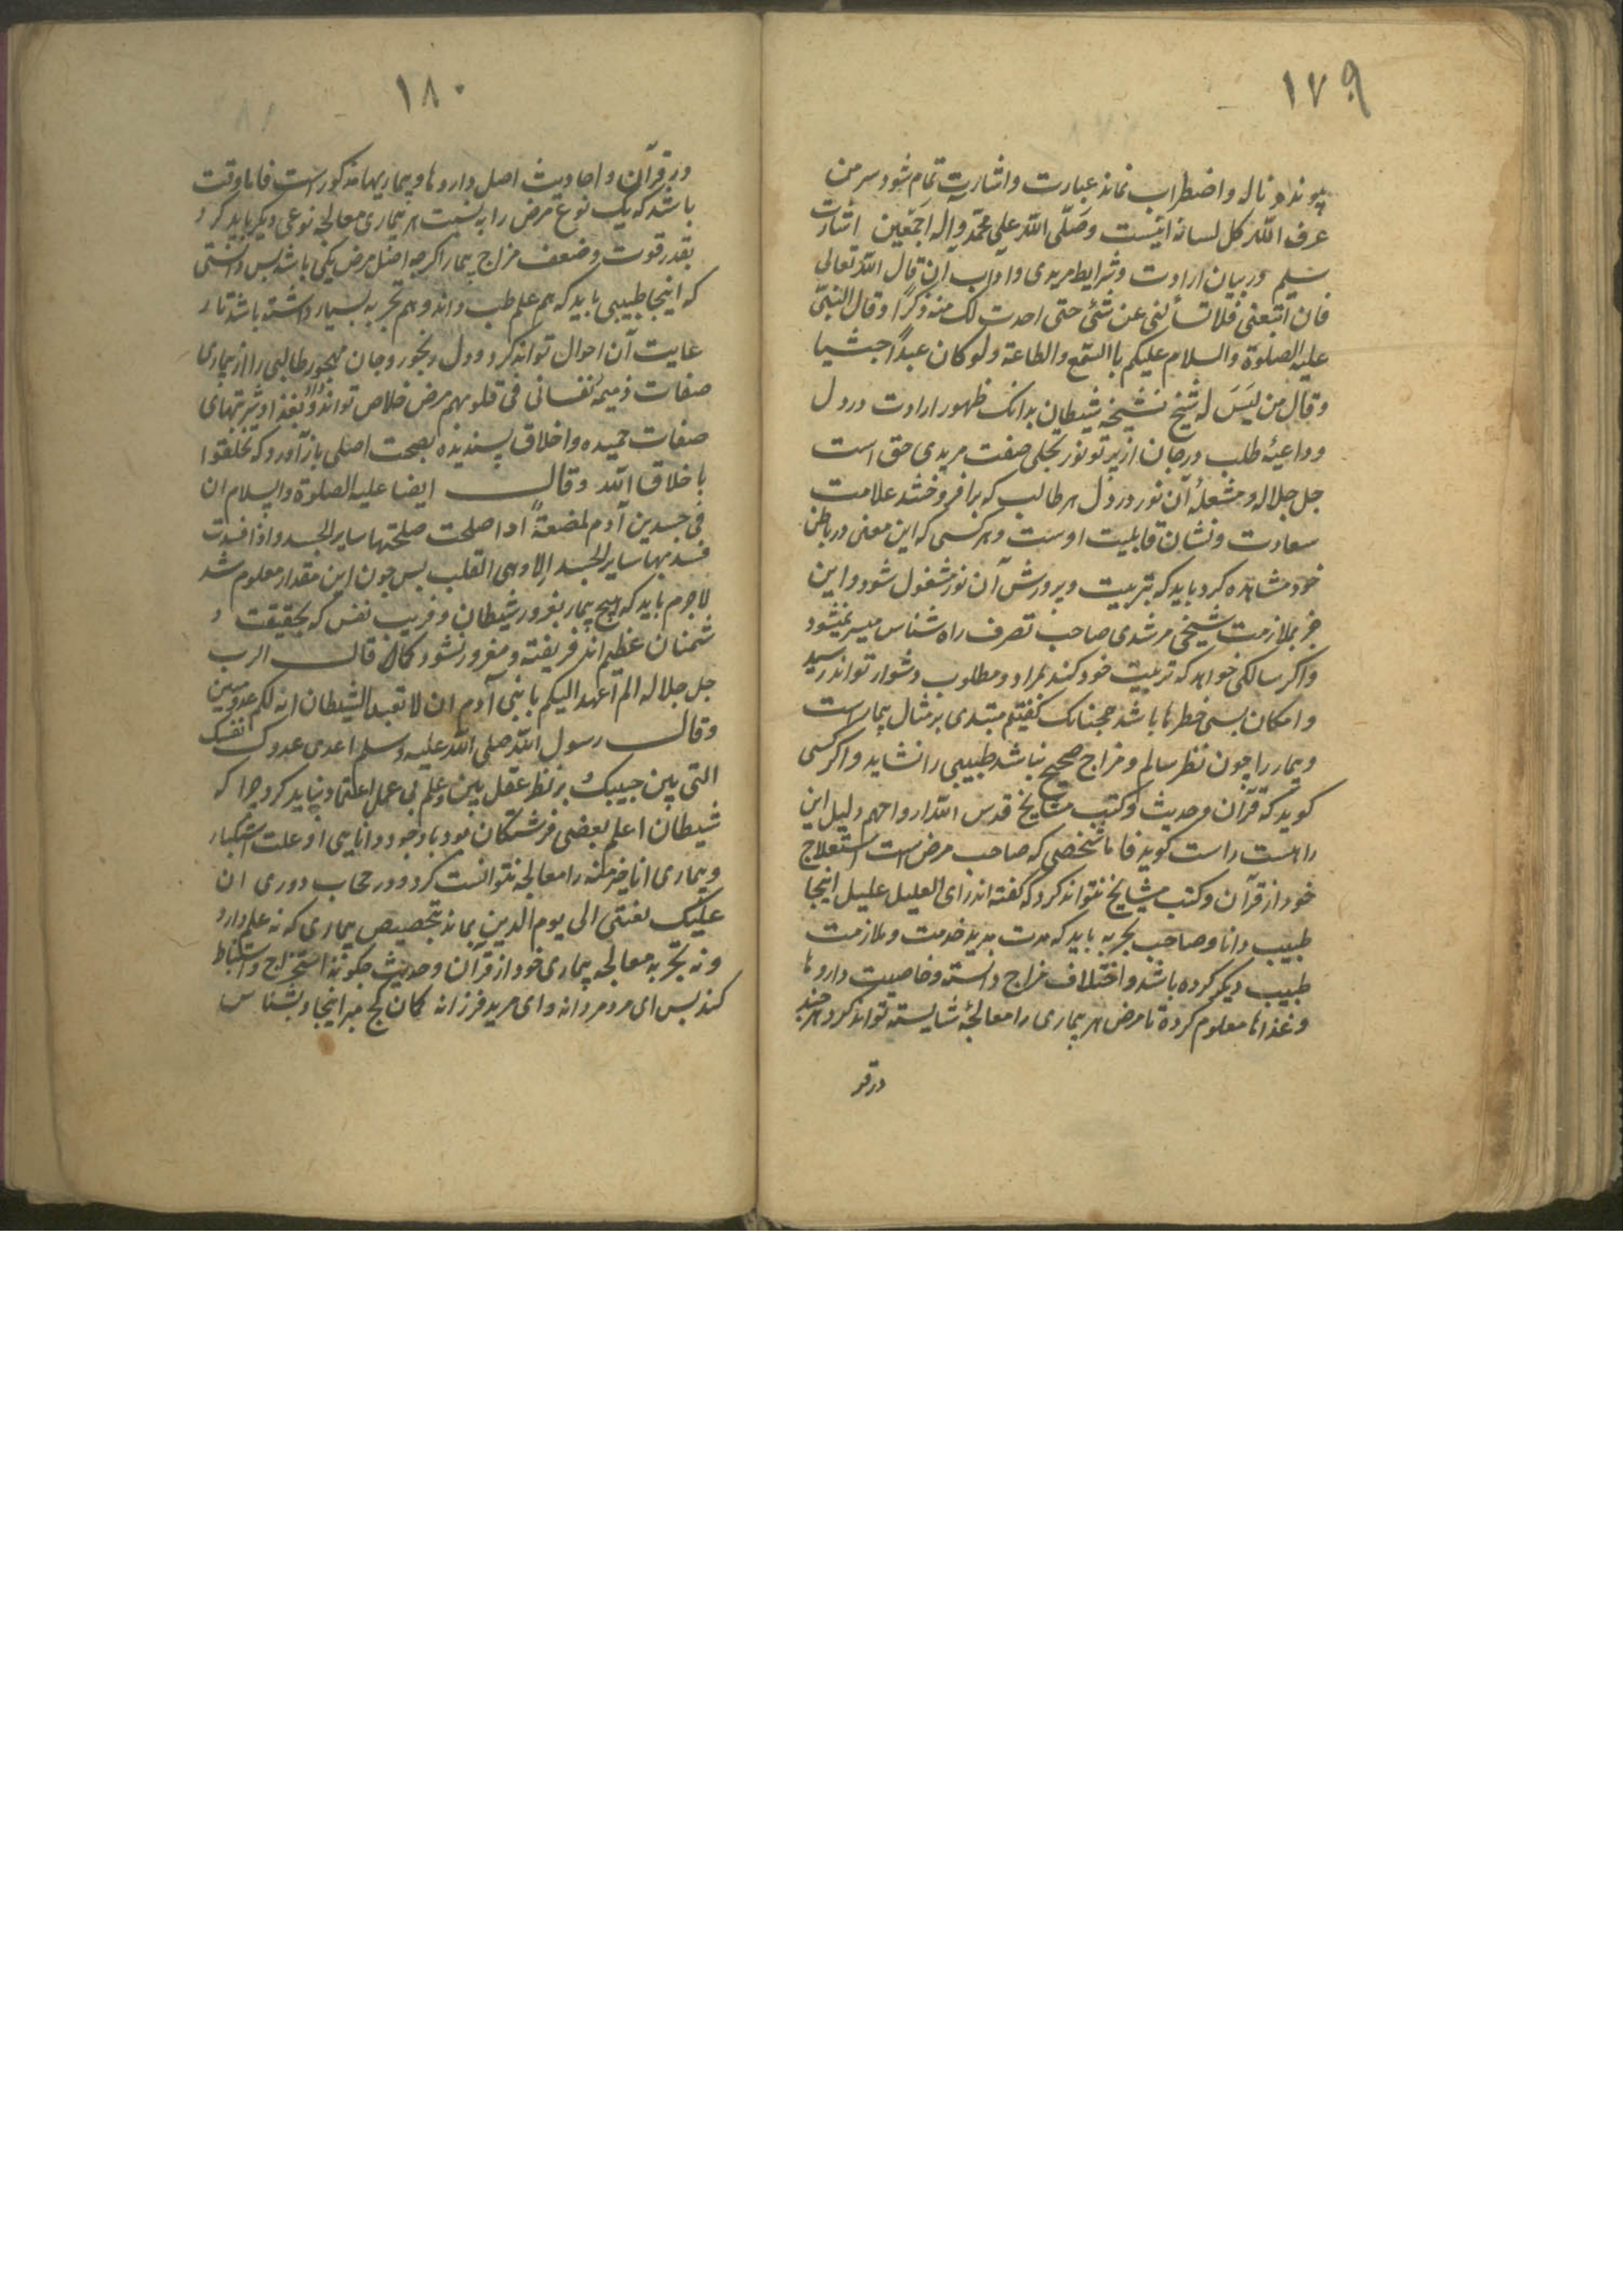 ١٧٩
پیوندد ناله و اضطراب نماند عبارت و اشارت تمام شود سر من
عرف الله کل لسانه اینست وصلی الله علی محمد و آله اجمعین اشارت
سیم در بیان ارادت و شرایط مریدی و اداب آن قال الله تعالی
فان اتبعنی فلا تسألنی عن شئ حتی احدث لک منه ذکرا و قال النبی
علیه الصلوة والسلام علیکم باالسمع والطاعة ولو کان عبدا حبشیا
وقال من لیس له شیخ فشیخه شیطان بدانک ظهور ارادت در دل
و داعیهٔ طلب در جان از پرتو نور تجلی صفت مریدی حق است
جل جلاله و مشعلهٔ آن نور در دل هر طالب که برافروختند علامت
سعادت و نشان قابلیت اوست و هر کسی که این معنی در باطن
خود مشاهده کرد باید که بتربیت و پرورش آن نور مشغول شود و این
جز بملازمت شیخی مرشدی صاحب تصرف راه شناس میسر نمیشود
واکر سالکی خواهد که تربیت خود کند بمراد و مطلوب دشوار تواند رسید
و امکان بسی خطرها باشد همچنانک کفتیم مبتدی بر مثال بیمار است
و بیمار را چون نظر سالم و مزاج صحیح نباشد طبیبی را نشاید و اکر کسی
کوید که قرآن و حدیث و کتب مشایخ قدس الله ارواحهم دلیل این
راهست راست کوید فاما شخصی که صاحب مرض است استعلاج
خود از قرآن و کتب مشایخ نتواند کرد که کفته اند رای العلیل علیل اینجا
طبیب دانا و صاحب تجربه باید که مدت مدید خدمت و ملازمت
طبیب دیکر کرده باشد و اختلاف مزاج دانسته و خاصیت داروها
و غذاها معلوم کرده تا مرض هر بیماری را معالجهٔ شایسته تواند کرد هرچند
در قر
١٨٠
در قرآن و احادیث اصل داروها و بیماریها مذکور است فاما وقت
باشد که یک نوع مرض را به نسبت هر بیماری معالجه نوعی دیکر باید کرد
بقدر قوت و ضعف مزاج بیمار اکرچه اصل مرض یکی باشد پس دانستی
که اینجا طبیبی باید که هم علم طب داند و هم تجربه بسیار داشته باشد تا ر
عایت آن احوال تواند کرد و دل رنجور و جان مهجور طالبی را از بیماری
صفات ذمیمه نفسانی فی قلوبهم مرض خلاص تواند داد و بغذا و شربتهای
صفات حمیده و اخلاق پسندیده بصحت اصلی باز آورد که تخلقوا
باخلاق الله وقال ایضا علیه الصلوة والسلام ان
فی جسد بن آدم لمضغة اذا صلحت صلحتها سایر الجسد واذا فسدت
فسد بها سایر الجسد الا وهی القلب پس چون این مقدار معلوم شد
لاجرم باید که هیچ بیمار بغرور شیطان و فریب نفس که بحقیقت د
شمنان عظیم اند فریفته و مغرور نشود کما قال الرب
جل جلاله الم اعهد الیکم یا بنی آدم ان لا تعبدالشیطان انه لکم عدو مبین
وقال رسول الله صلی الله علیه وسلم اعدی عدوک نفسک
التی بین جنبیک بر نظر عقل بین و علم بی عمل اعتماد نباید کرد چرا که
شیطان اعلم بعضی فرشتکان بود باوجود دانایی او علت استکبار
و بیماری انا خیر منه را معالجه نتوانست کرد و در حجاب دوری ان
علیک لعنتی الی یوم الدین بماند بتخصیص بیماری که نه علم دارد
و نه تجربه معالجه بیماری خود از قرآن و حدیث چکونه استخراج و استنباط
کند پس ای مرد مردانه و ای مرید فرزانه کمان کج مبر اینجا و بشناس